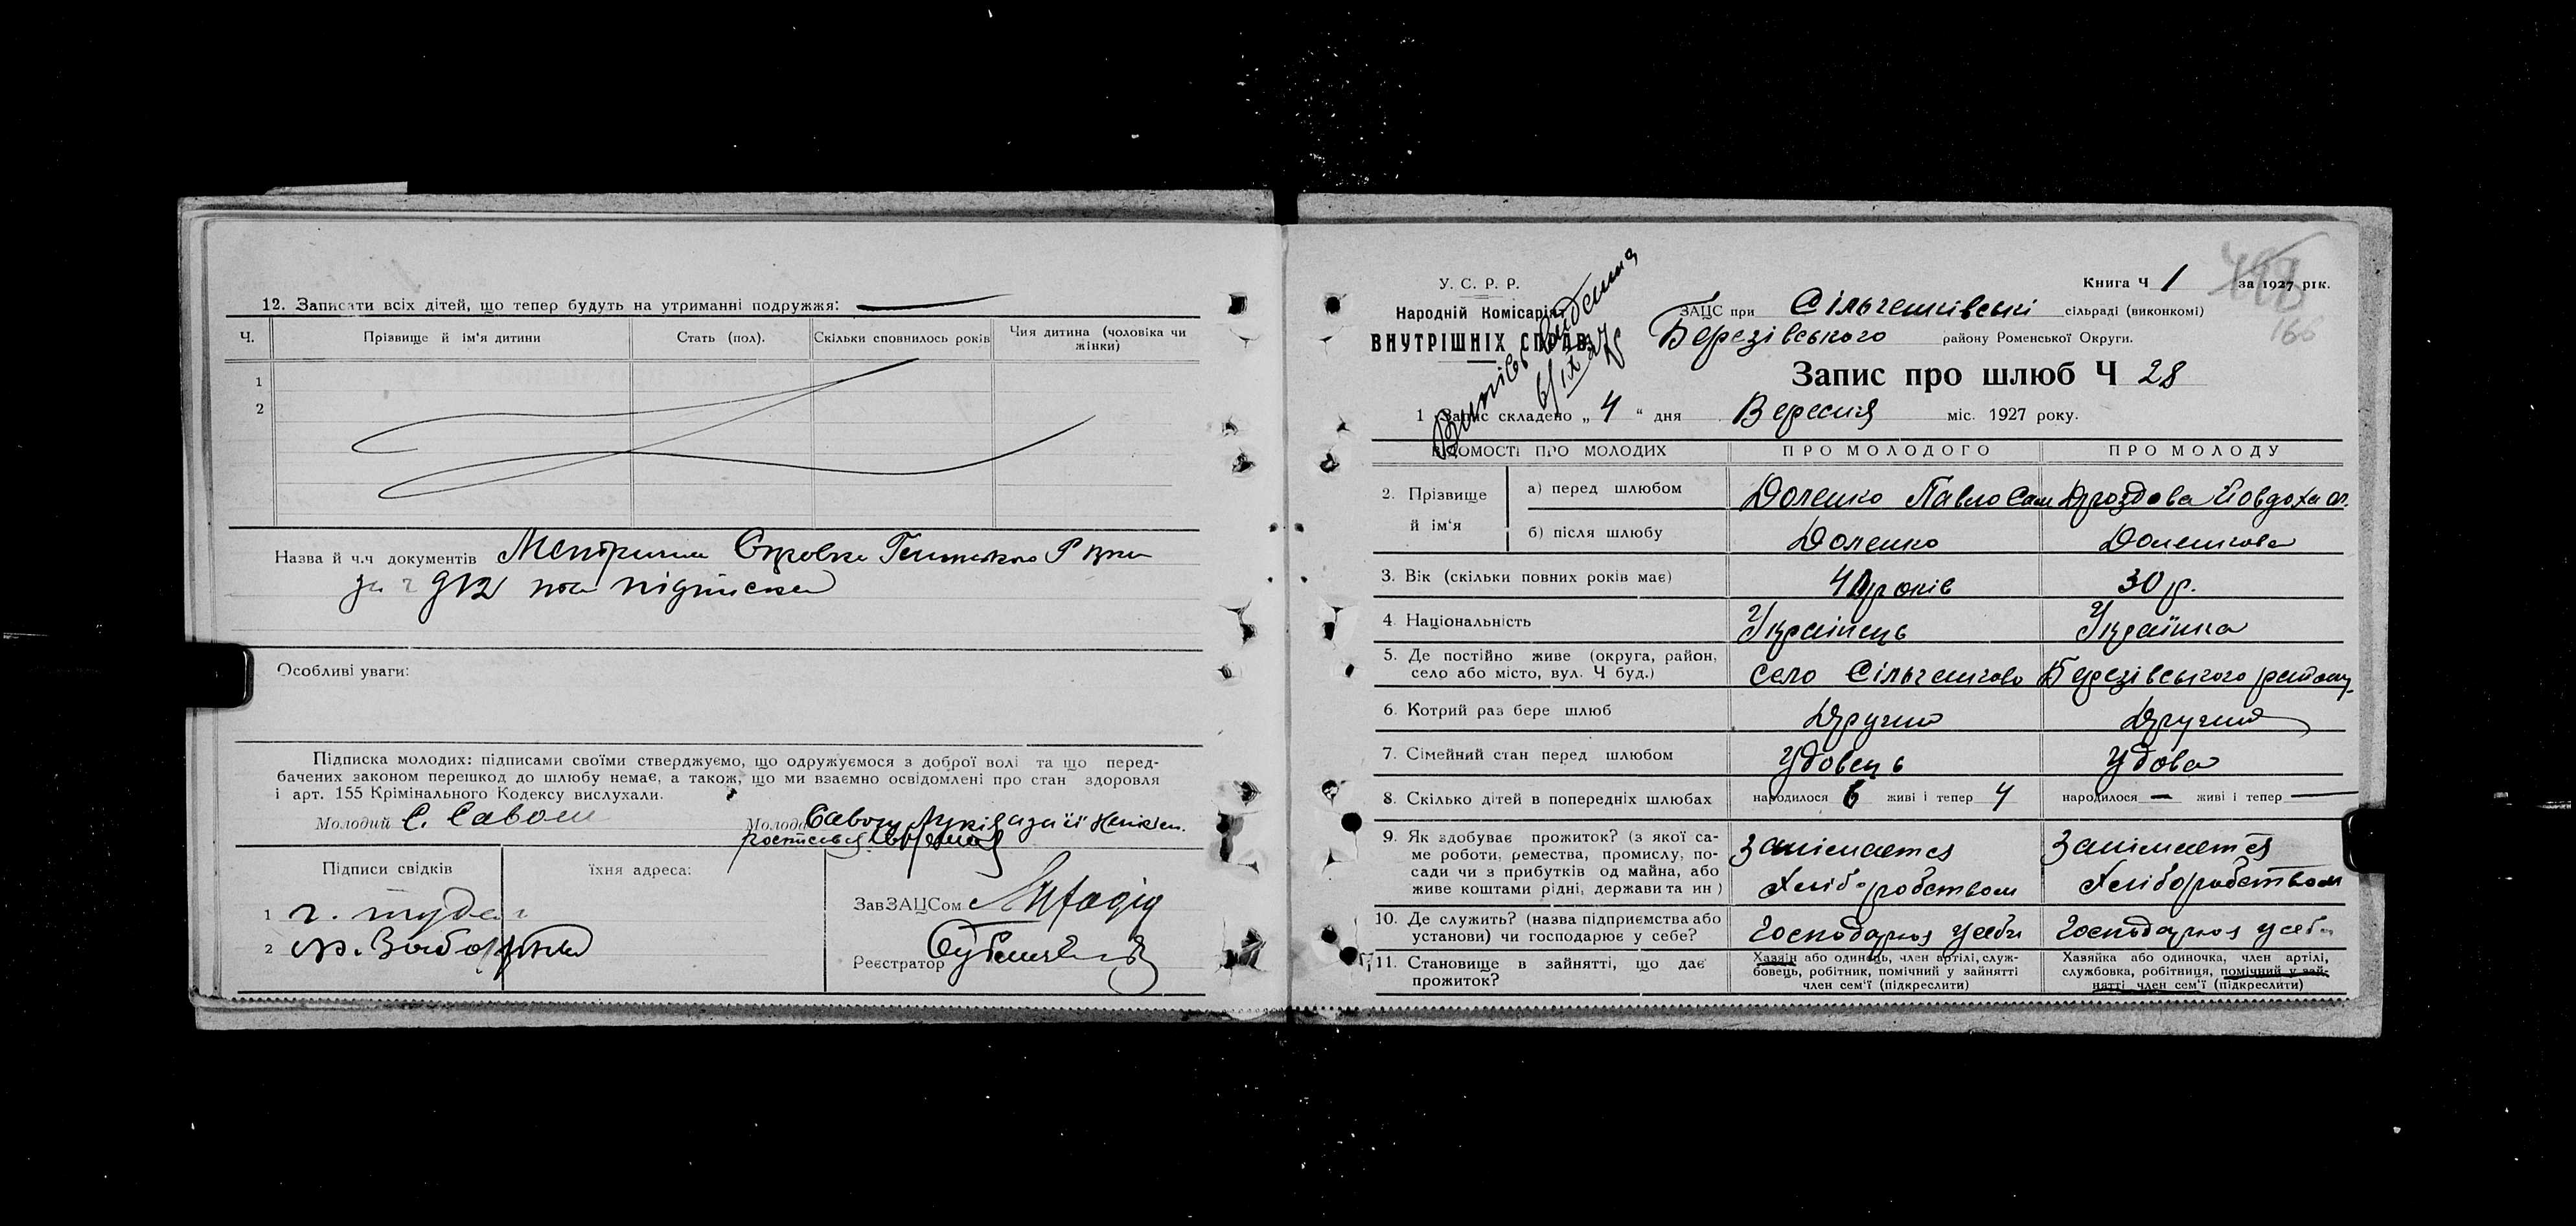 12. Записати всіх дітей, що тепер будуть на утриманні подружжя:
Ч. Прізвище й ім'я дитини Стать (пол). Скільки сповнилось років Чия дитина (чоловіка чи жінки)
1
2
Назва й ч.ч документів
912 підписка
Особливі уваги:
Підписка молодих: підписами своїми стверджуємо, що одружуємося з доброї волі та що перед-
бачених законом перешкод до шлюбу немає, а також, що ми взаємно освідомлені про стан здоровля
і арт. 155 Крімінального Кодексу вислухали.
Молодий С. Савош Молода
Підписи свідків їхня адреса:
ЗавЗАЦСом
1
2
Реєстратор
У. С. Р. Р.
Народній Комісаріят
ВНУТРІШНІХ СПРАВ
Книга Ч 1 за 1927 рік.
166
ЗАЦС при сільраді (виконкомі)
Березівського району Роменської Округи.
Запис про шлюб Ч 28
1 Запис складено „ 4 " дня Вересня міс. 1927 року.
ВІДОМОСТІ ПРО МОЛОДИХ ПРО МОЛОДОГО ПРО МОЛОДУ
2. Прізвище й ім'я а) перед шлюбом Доленко Павло Сам Дроздова Йовдоха
б) після шлюбу Доленко Доленкова
3. Вік (скільки повних років має) років 30 р.
4. Національність Українець Українка
5. Де постійно живе (округа, район, село або місто, вул. Ч буд.) село Березівського району
6. Котрий раз бере шлюб Другий Другий
7. Сімейний стан перед шлюбом Удовець Удова
8. Скілько дітей в попередніх шлюбах народилося 6 живі і тепер 4 народилося — живі і тепер —
9. Як здобуває прожиток? (з якої са-
ме роботи, ремества, промислу, по-
сади чи з прибутків од майна, або
живе коштами рідні, держави та ин)
Занімается Хліборобством
Занімается Хліборобством
10. Де служить? (назва підприємства або
установи) чи господарює у себе?
Господарює у себе
Господарює у себе
11. Становище в зайнятті, що дає
прожиток?
Хазяїн або одинець, член артілі, служ-
бовець, робітник, помічний у зайнятті
член сем'ї (підкреслити)
Хазяйка або одиночка, член артілі,
службовка, робітниця, помічний у зай-
нятті член сем'ї (підкреслити)